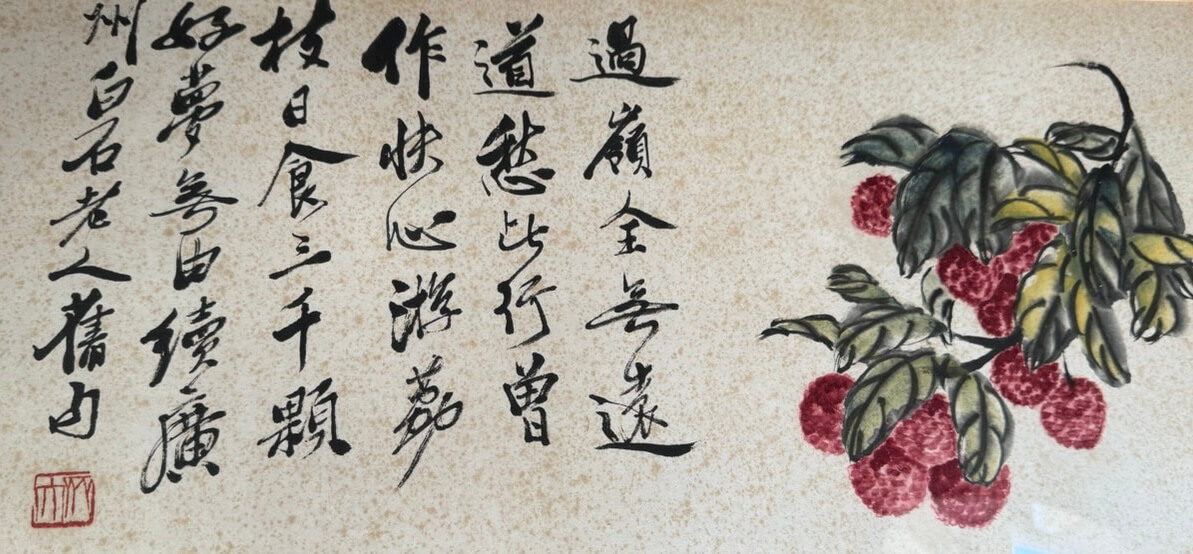 過嶺全無遠
道愁此行曾
作快心游荔
枝日食三千顆
好夢無由續廣
州白石老人舊句